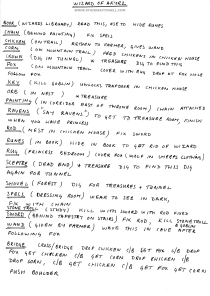 WIZARD OF AKYRZ
BOOK (WIZARDS LIBRARY) READ THIS, USE TO HIDE BONES.
CHAIN (BEHIND PAINTING) FIX SPELL
CHICKEN (ON TRAIL) RETURN TO FARMER, GIVES WAND
CORN (ON MOUNTAIN TRAIL) FEED CHICKENS IN CHICKEN HOUSE
CROWN (DIG IN TUNNEL) * TREASURE DIG TO FIND THIS
FOX (ON MOUNTAIN TRAIL) COVER WITH RUG DROP AT FOX HOLE
FOLLOW FOX
KEY (KILL GOBLIN) UNLOCKS TRAPDOOR IN CHICKEN HOUSE
ORB (IN NEST) * TREASURE
PAINTING (IN CORRIDOR EAST OF THRONE ROOM) CHAIN ATTACHED
RAVENS (SAY RAVENS) TO GET TO TREASURE ROOM, FINISH
WHEN YOU HAVE PRINCESS
ROD (NEST IN CHICKEN HOUSE) FIX SWORD
BONES (IN BOOK) HIDE IN BOOK TO GET RID OF WIZARD
RUG (PRINCESS BEDROOM) COVER FOX (WOLF IN SHEEPS CLOTHING)
SCEPTER (DEAD END) * TREASURE DIG TO FIND THIS DIG
AGAIN FOR TUNNEL
SHOVEL (FOREST) DIG FOR TREASURES & TUNNEL
SPELL (DRESSING ROOM) WEAR TO SEE IN DARK,
FIX WITH CHAIN
STONE TROLL (STUDY) KILL WITH SWORD WITH ROD FIXED
SWORD (BEHIND TAPESTRY ON STAIRS) FIX ROD, KILL STONE TROLL & GOBLIN
WAND (GIVEN BY FARMER) WAVE THIS IN CAVE AFTER
FOLLOWING FOX
BRIDGE CROSS/BRIDGE DROP CHICKEN C/B GET FOX C/B DROP
FOX GET CHICKEN C/B GET CORN DROP CHICKEN C/B
DROP CORN, C/B GET CHICKEN C/B GET FOX GET CORN
PUSH BOULDER